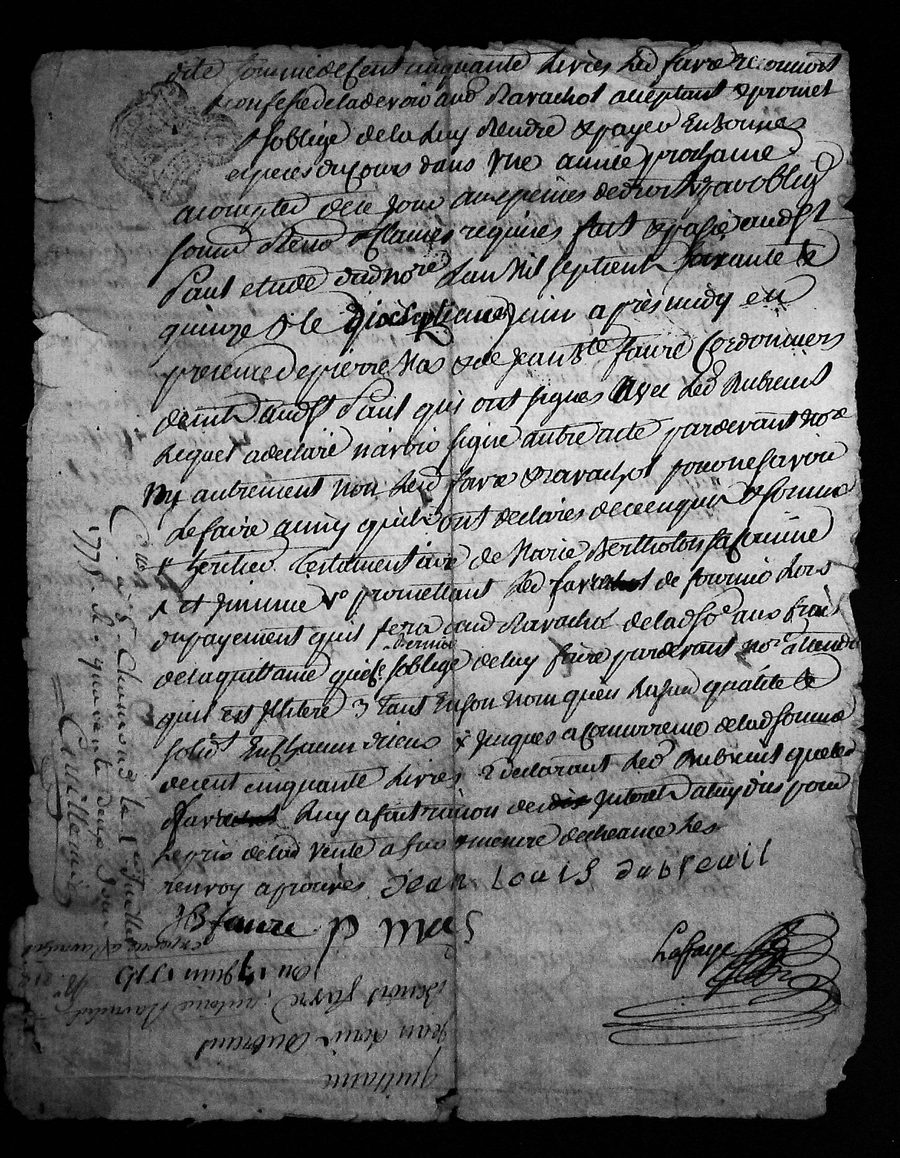 dite somme de Cent cinquante Livres Led favre reconnoit
& confesse de la devoir aud Ravachol acceptant & promet
& soblige de la luy Rendre & payer En bonnes
especes du Cours dans Une année prochaine
a compter de ce jour aux peines de droit par oblig
soum Reno & Clauses requises fait & passé aud St
Paul etude dud nore Lan Mil sept cent soixante &
quinze & le dixseptieme juin apres midy en
presence de pierre Mas & de jean bte faure Cordonniers
dem aud St Paul qui ont signes avec Led dubreuil
Lequel a declaré navoir signé autre acte pardevant nore
ny autrement non Led favre & ravachol pour ne savoir
Le faire ainsy quils ont declares de ce enquis & somme
& heritier testamentaire de Marie Bertholon sa femme
& promettant Led fav de fournir Lors
du payement quil fera aud Ravachol de lad so aux frais
de la quittance quil soblige dernier de luy faire pardevant nore attendu
quil est Illiteré 3 tant En son nom quen Lasusd qualité &
solid En Chacun dieux & jusques a Concurrence de lad somme
de cent cinquante Livres & declarant Led dubreuil que led
favre Luy a fait raison de interet a luy dus pour
Le prix de lad vente a fur & mesure decheance Les
renvoy aprouvés Jean Louis dubreuil
JB faure p mas
Laffay
Con a St Chamond le 1 juillet
1775 R quarante deux sous
Cuillemin
quittance
jean Louis dubreuil
Benoit favre, antoine Ravachol
du 17 juin 1775